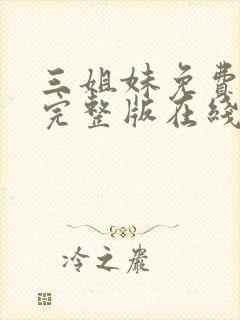 三姐妹免费
完整版在线
冷之岩